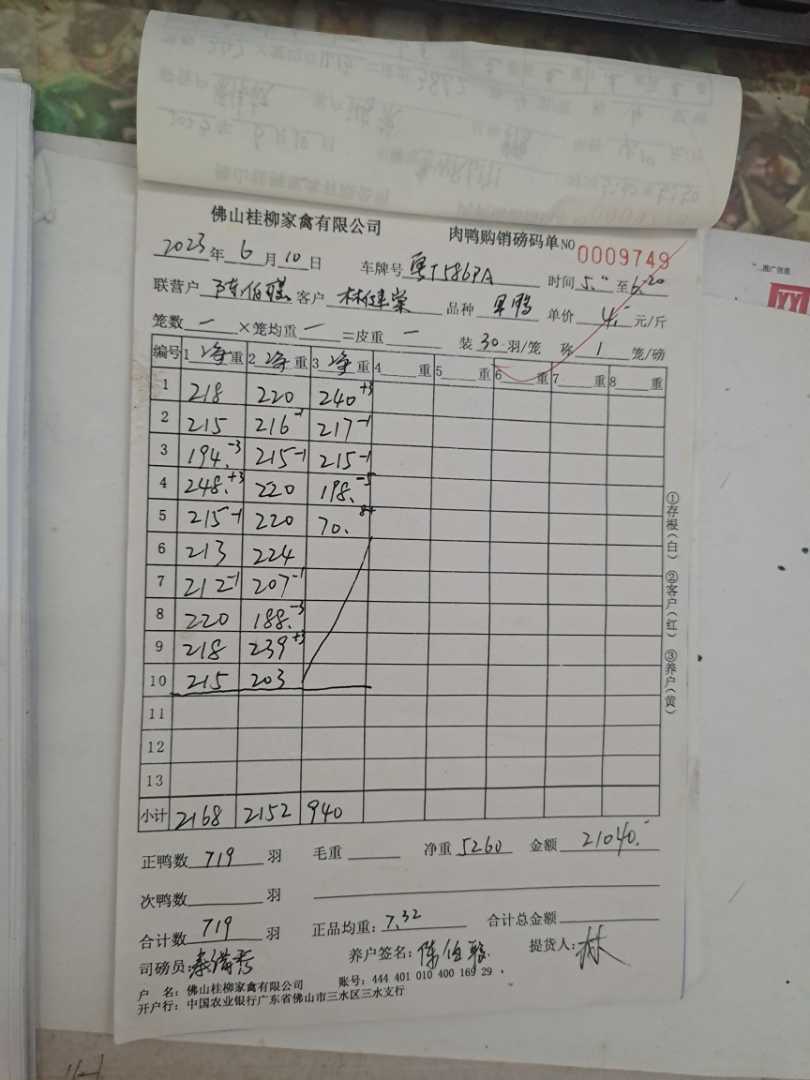 佛山桂柳家禽有限公司 肉鸭购销磅码单NO 0009749
2023年 6 月 10 日 车牌号 粤T5867A 时间 5.00 至 6.20
联营户 陈伯 客户 林健棠 品种 旱鸭 单价 4.- 元/斤
笼数 一 ×笼均重 一 =皮重 一 装 30 羽/笼 称 1 笼/磅
编号 1 净 重 2 净 重 3 净 重 4 重 5 重 6 重 7 重 8 重
1 218 220 240+3
2 215 216-1 217-1
3 194.-3 215-1 215-1
4 248.+3 220 198.-5
5 215-1 220 70.
6 213 224
7 212-1 207-1
8 220 188.-3
9 218 239+3
10 215 203
11
12
13
小计 2168 2152 940
①存根(白) ②客户(红) ③养户(黄)
正鸭数 719 羽 毛重 净重 5260 金额 21040.-
次鸭数 羽
合计数 719 羽 正品均重: 7.32 合计总金额
司磅员: 养户签名: 陈伯 提货人: 林
户 名: 佛山桂柳家禽有限公司 账号: 444 401 010 400 169 29
开户行: 中国农业银行广东省佛山市三水区三水支行